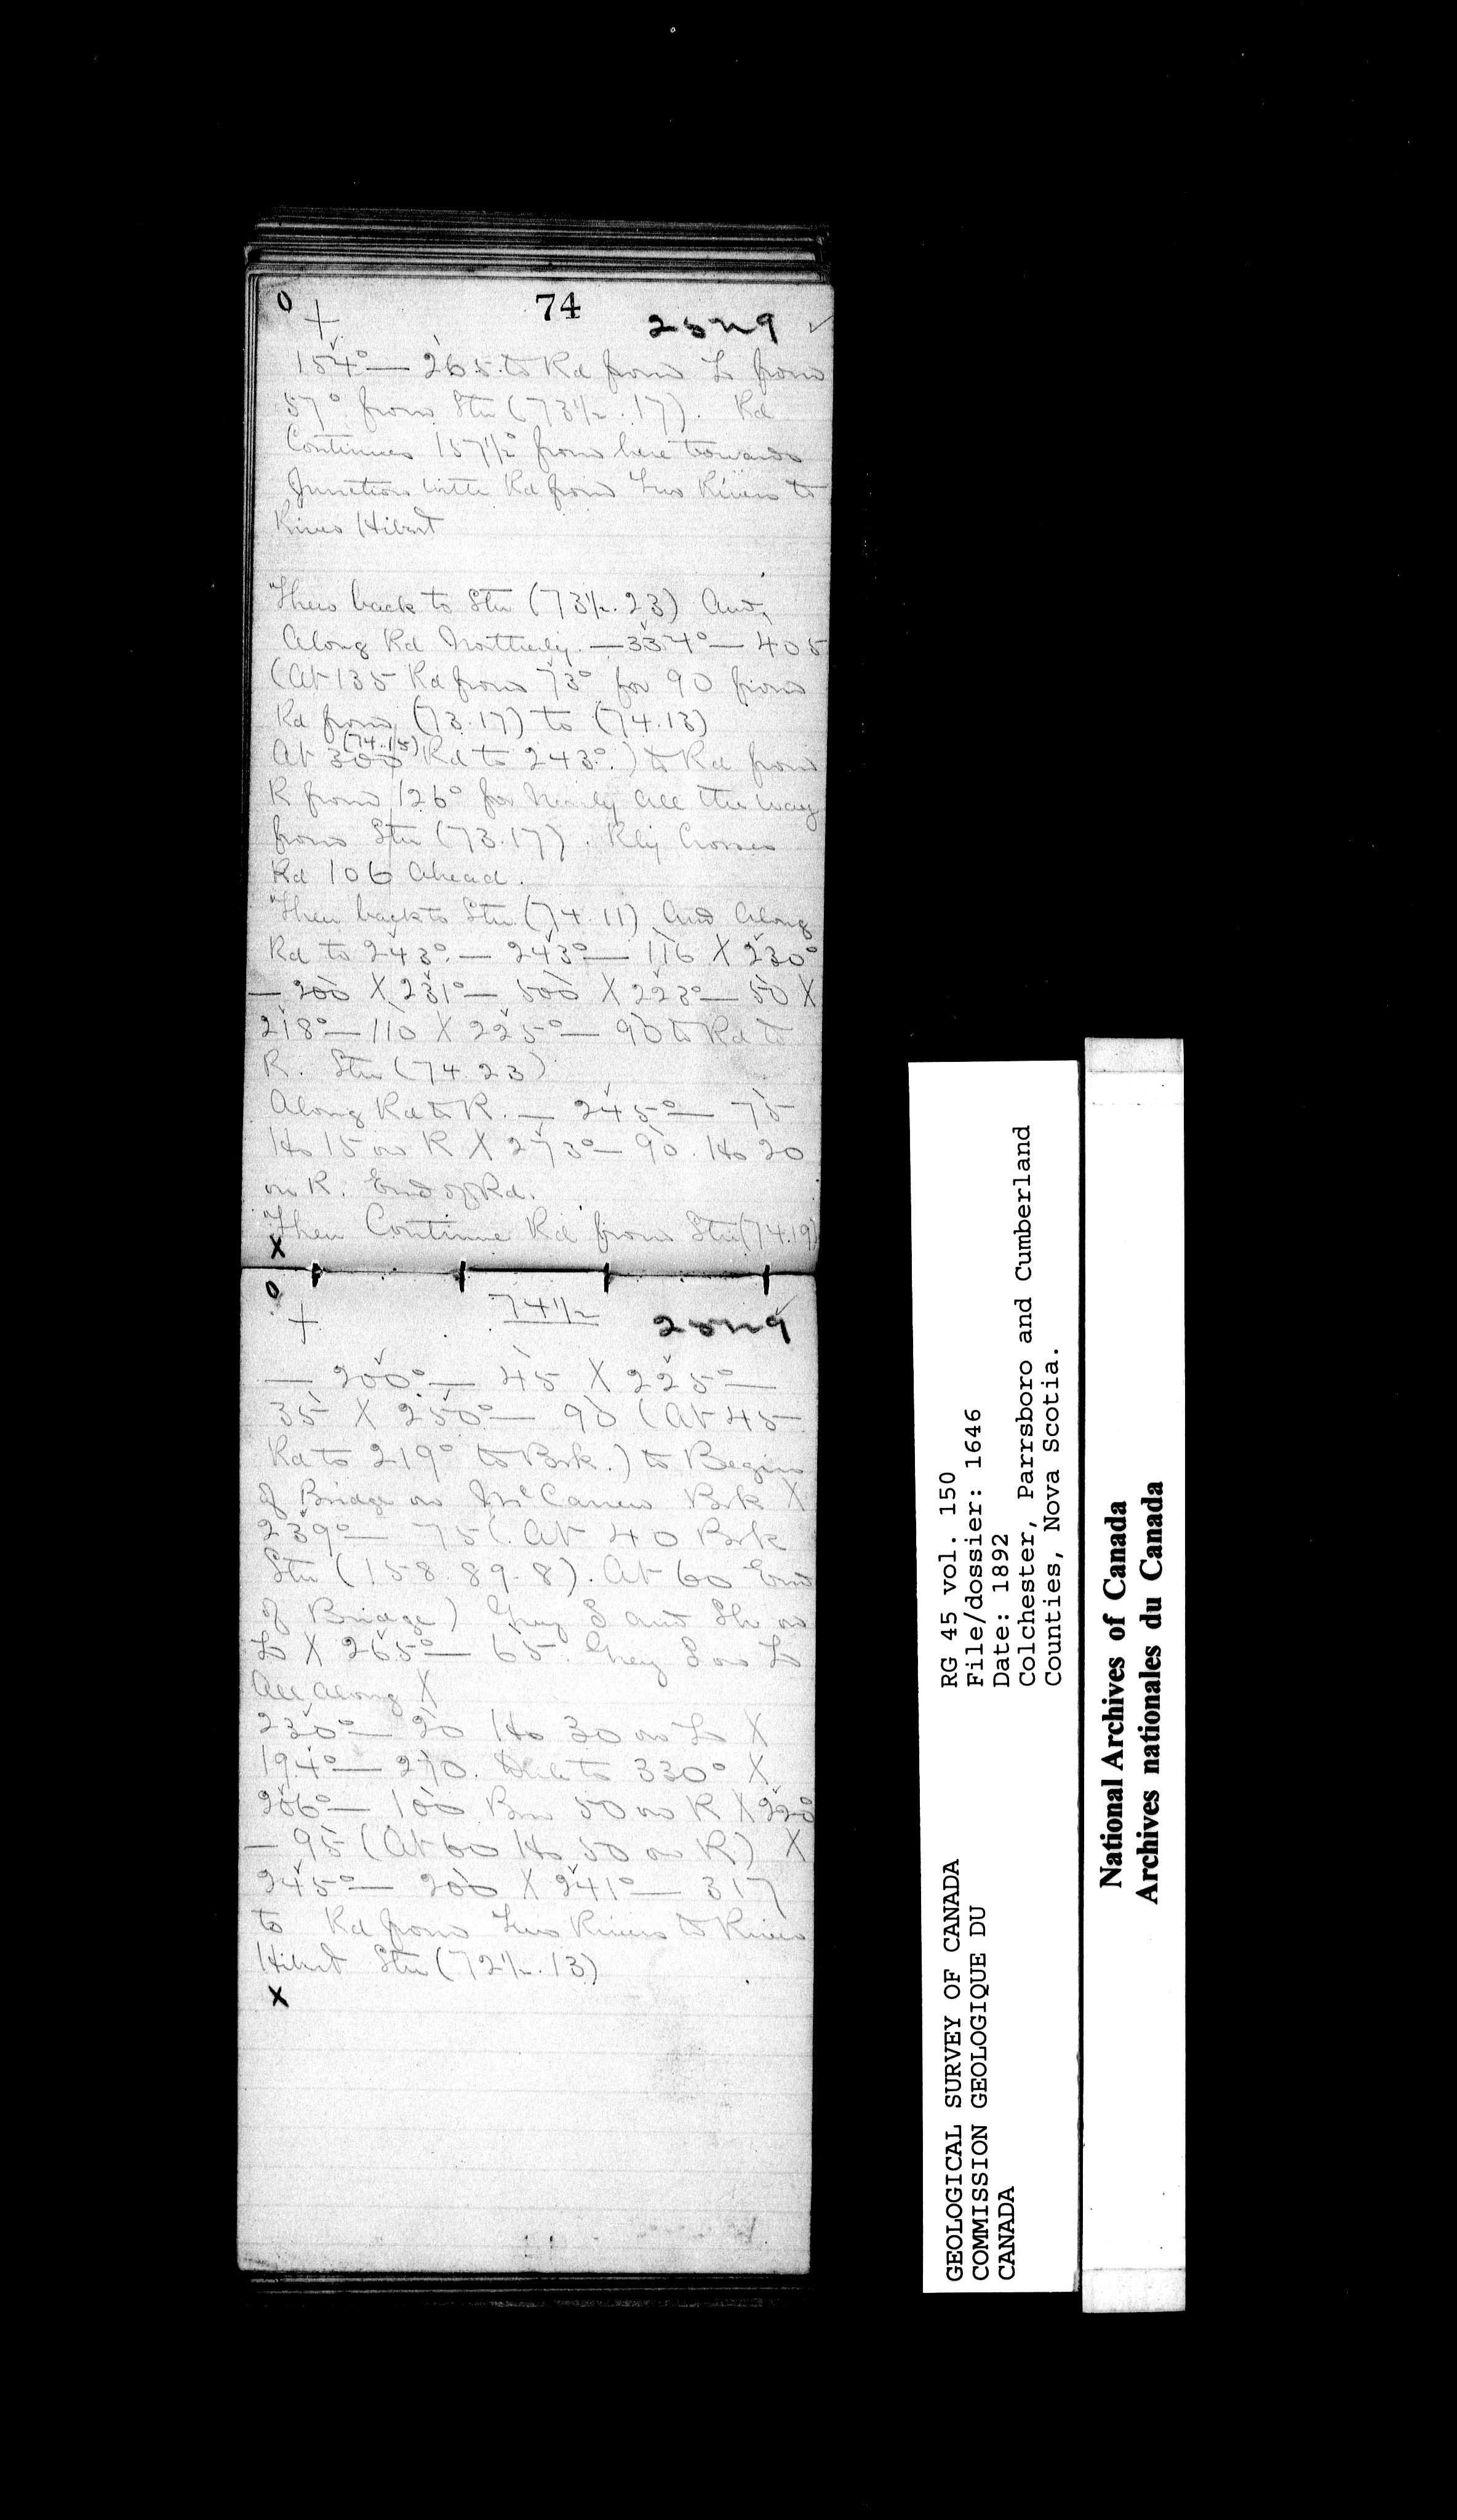 74
154° — 265 to Rd from L from
57° from Stn (73½.17). Rd
Continues 157½° from here towards
Junction with Rd from Two Rivers to
River Hibert
Then back to Stn (73½.23) And
Along Rd Northerly — 334° — 405
(At 135 Rd from 73° for 90 from
Rd from (73.17) to (74.13)
(74.15)
At 300 Rd to 243°.) to Rd from
R from 126° for Nearly all the way
from Stn (73.17). Rly Crosses
Rd 106 Ahead.
Then back to Stn (74.11) And Along
Rd to 243°. — 243° — 116 X 230°
— 200 X 231° — 500 X 223° — 50 X
218° — 110 X 225° — 90 to Rd to
R. Stn (74.23)
Along Rd to R. — 245° — 75
Ho 15 on R X 273° — 90. Ho 20
on R. End of Rd.
Then Continue Rd from Stn (74.19)
X
74½
— 200° — 45 X 225° —
35 X 250° — 90 (At 45
Rd to 219° to Brk.) to Begin
of Bridge on McCarren Brk X
239° — 75 (At 40 Brk
Stn (158 89-8). At 60 End
of Bridge) Grey S and Sh on
L X 265° — 65. Grey S on L
All Along X
230° — 20 Ho 30 on L X
194° — 270. to 330° X
206° — 100 Brn 50 on R X 220
— 95 (At 60 Ho 50 on R) X
245° — 200 X 241° — 317
to Rd from Two Rivers to River
Hibert Stn (72½.13)
X
GEOLOGICAL SURVEY OF CANADA
COMMISSION GEOLOGIQUE DU
CANADA
RG 45 vol. 150
File/dossier: 1646
Date: 1892
Colchester, Parrsboro and Cumberland
Counties, Nova Scotia.
National Archives of Canada
Archives nationales du Canada